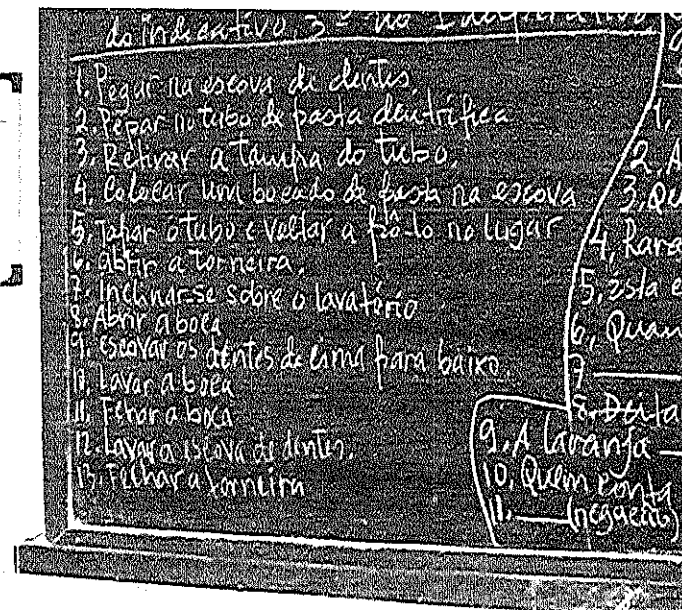 do indicativo, 3º no Imperativo
1. Pegar na escova de dentes.
2. Pegar no tubo de pasta dentrífica
3. Retirar a tampa do tubo.
4. Colocar um bocado de pasta na escova
5. Tapar o tubo e voltar a pô-lo no lugar
6. abrir a torneira.
7. Inclinar-se sobre o lavatório
8. Abrir a boca
9. escovar os dentes de cima para baixo.
10. Lavar a boca
11. Fechar a boca
12. Lavar a escova de dentes.
13. Fechar a torneira
1.
2. A
3. Qu
4. Rara
5. Esta e
6. Quan
7
8. Deita
9. A laranja
10. Quem conta
11. (negócio)